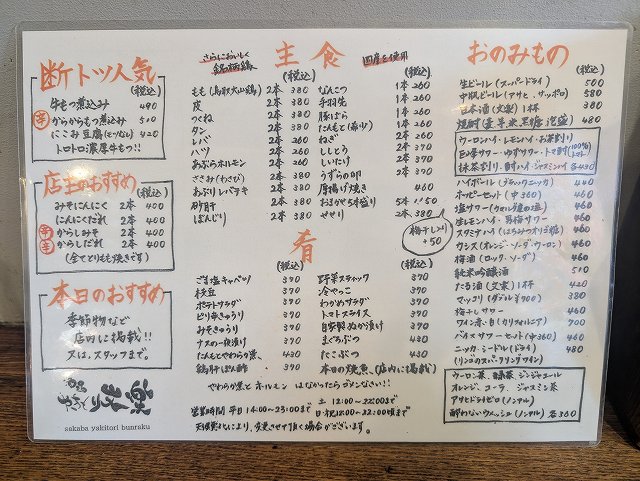 断トツ人気
(税込)
牛もつ煮込み 490
辛 からからもつ煮込み 510
にこみ豆腐(ヒツなし) 420
トロトロ濃厚牛もつ!!
店主のおすすめ
(税込)
みそにんにく 2本 400
にんにくだれ 2本 400
辛 からしみそ 2本 400
辛 からしだれ 2本 400
(全てとりもも焼きです)
本日のおすすめ
季節物など
店内に掲載!!
又は、スタッフまで。
酒場 やきとり 文楽
sakaba yakitori bunraku
さらにおいしく
銘柄鶏
主食
国産を使用
(税込)
もも 2本 380
皮 2本 380
つくね 2本 380
タン 2本 380
レバ 2本 380
ハツ 2本 380
あぶらホルモン 2本 380
ささみ(わさび) 2本 380
あぶりレバテキ 2本 380
砂肝 2本 380
ぼんじり 2本 380
(税込)
なんこつ 1本 260
手羽先 1本 260
豚ばら 1本 260
たんもと(希少) 1本 260
ねぎ 2本 370
ししとう 2本 370
しいたけ 2本 370
うずらの卵 2本 370
唐揚げ焼き 460
おまかせ5本盛り 5本 1150
せせり 2本 380
梅干し入り
+50
肴
(税込)
ごま塩キャベツ 370
枝豆 370
ポテトサラダ 370
ピリ辛きゅうり 370
みそきゅうり 370
ナスの一夜漬け 370
たんもとやわらか煮 430
鶏肝ぽん酢 390
(税込)
野菜スティック 390
冷やっこ 370
わかめサラダ 370
トマトスライス 370
自家製ぬか漬け 370
まぐろぶつ 430
たこぶつ 430
本日の焼魚 (店内に掲載)
やわらか煮と ホルモン はなかったらゴメンなさい!!
営業時間 平日14:00~23:00まで
土 12:00~22:00まで
日・祝12:00~22:00頃まで
天候悪化により、変更させて頂く場合がございます。
おのみもの
(税込)
生ビール(スーパードライ) 500
中瓶ビール(アサヒ、サッポロ) 580
日本酒(文楽)1杯 380
焼酎(麦、芋、米、黒糖、泡盛) 480
ウーロンハイ・レモンハイ・お茶割り
巨峰サワー・ゆずサワー・トマト酎(100%トマト)
抹茶割り・酎ハイ・ジャスミンハイ 各430
ハイボール(ブラックニッカ) 440
ホッピーセット(中360) 460
塩サワー 460
生レモンハイ・男梅サワー 460
スタミナハイ(はちみつ入りお酢) 460
カシス(オレンジ・ソーダ・ウーロン) 460
梅酒(ロック・ソーダ) 460
純米吟醸酒 510
たる酒(文楽)1杯 420
マッコリ 380
梅干しサワー 460
ワイン・赤・白(カリフォルニア) 700
バイスサワーセット(中360) 460
ニッカ・シードル(ドライ) 480
(リンゴのスパークリングワイン)
ウーロン茶、緑茶、ジンジャエール
オレンジ、コーラ、ジャスミン茶
アサヒドライゼロ(ノンアル)
酔わないウメッシュ(ノンアル) 各360